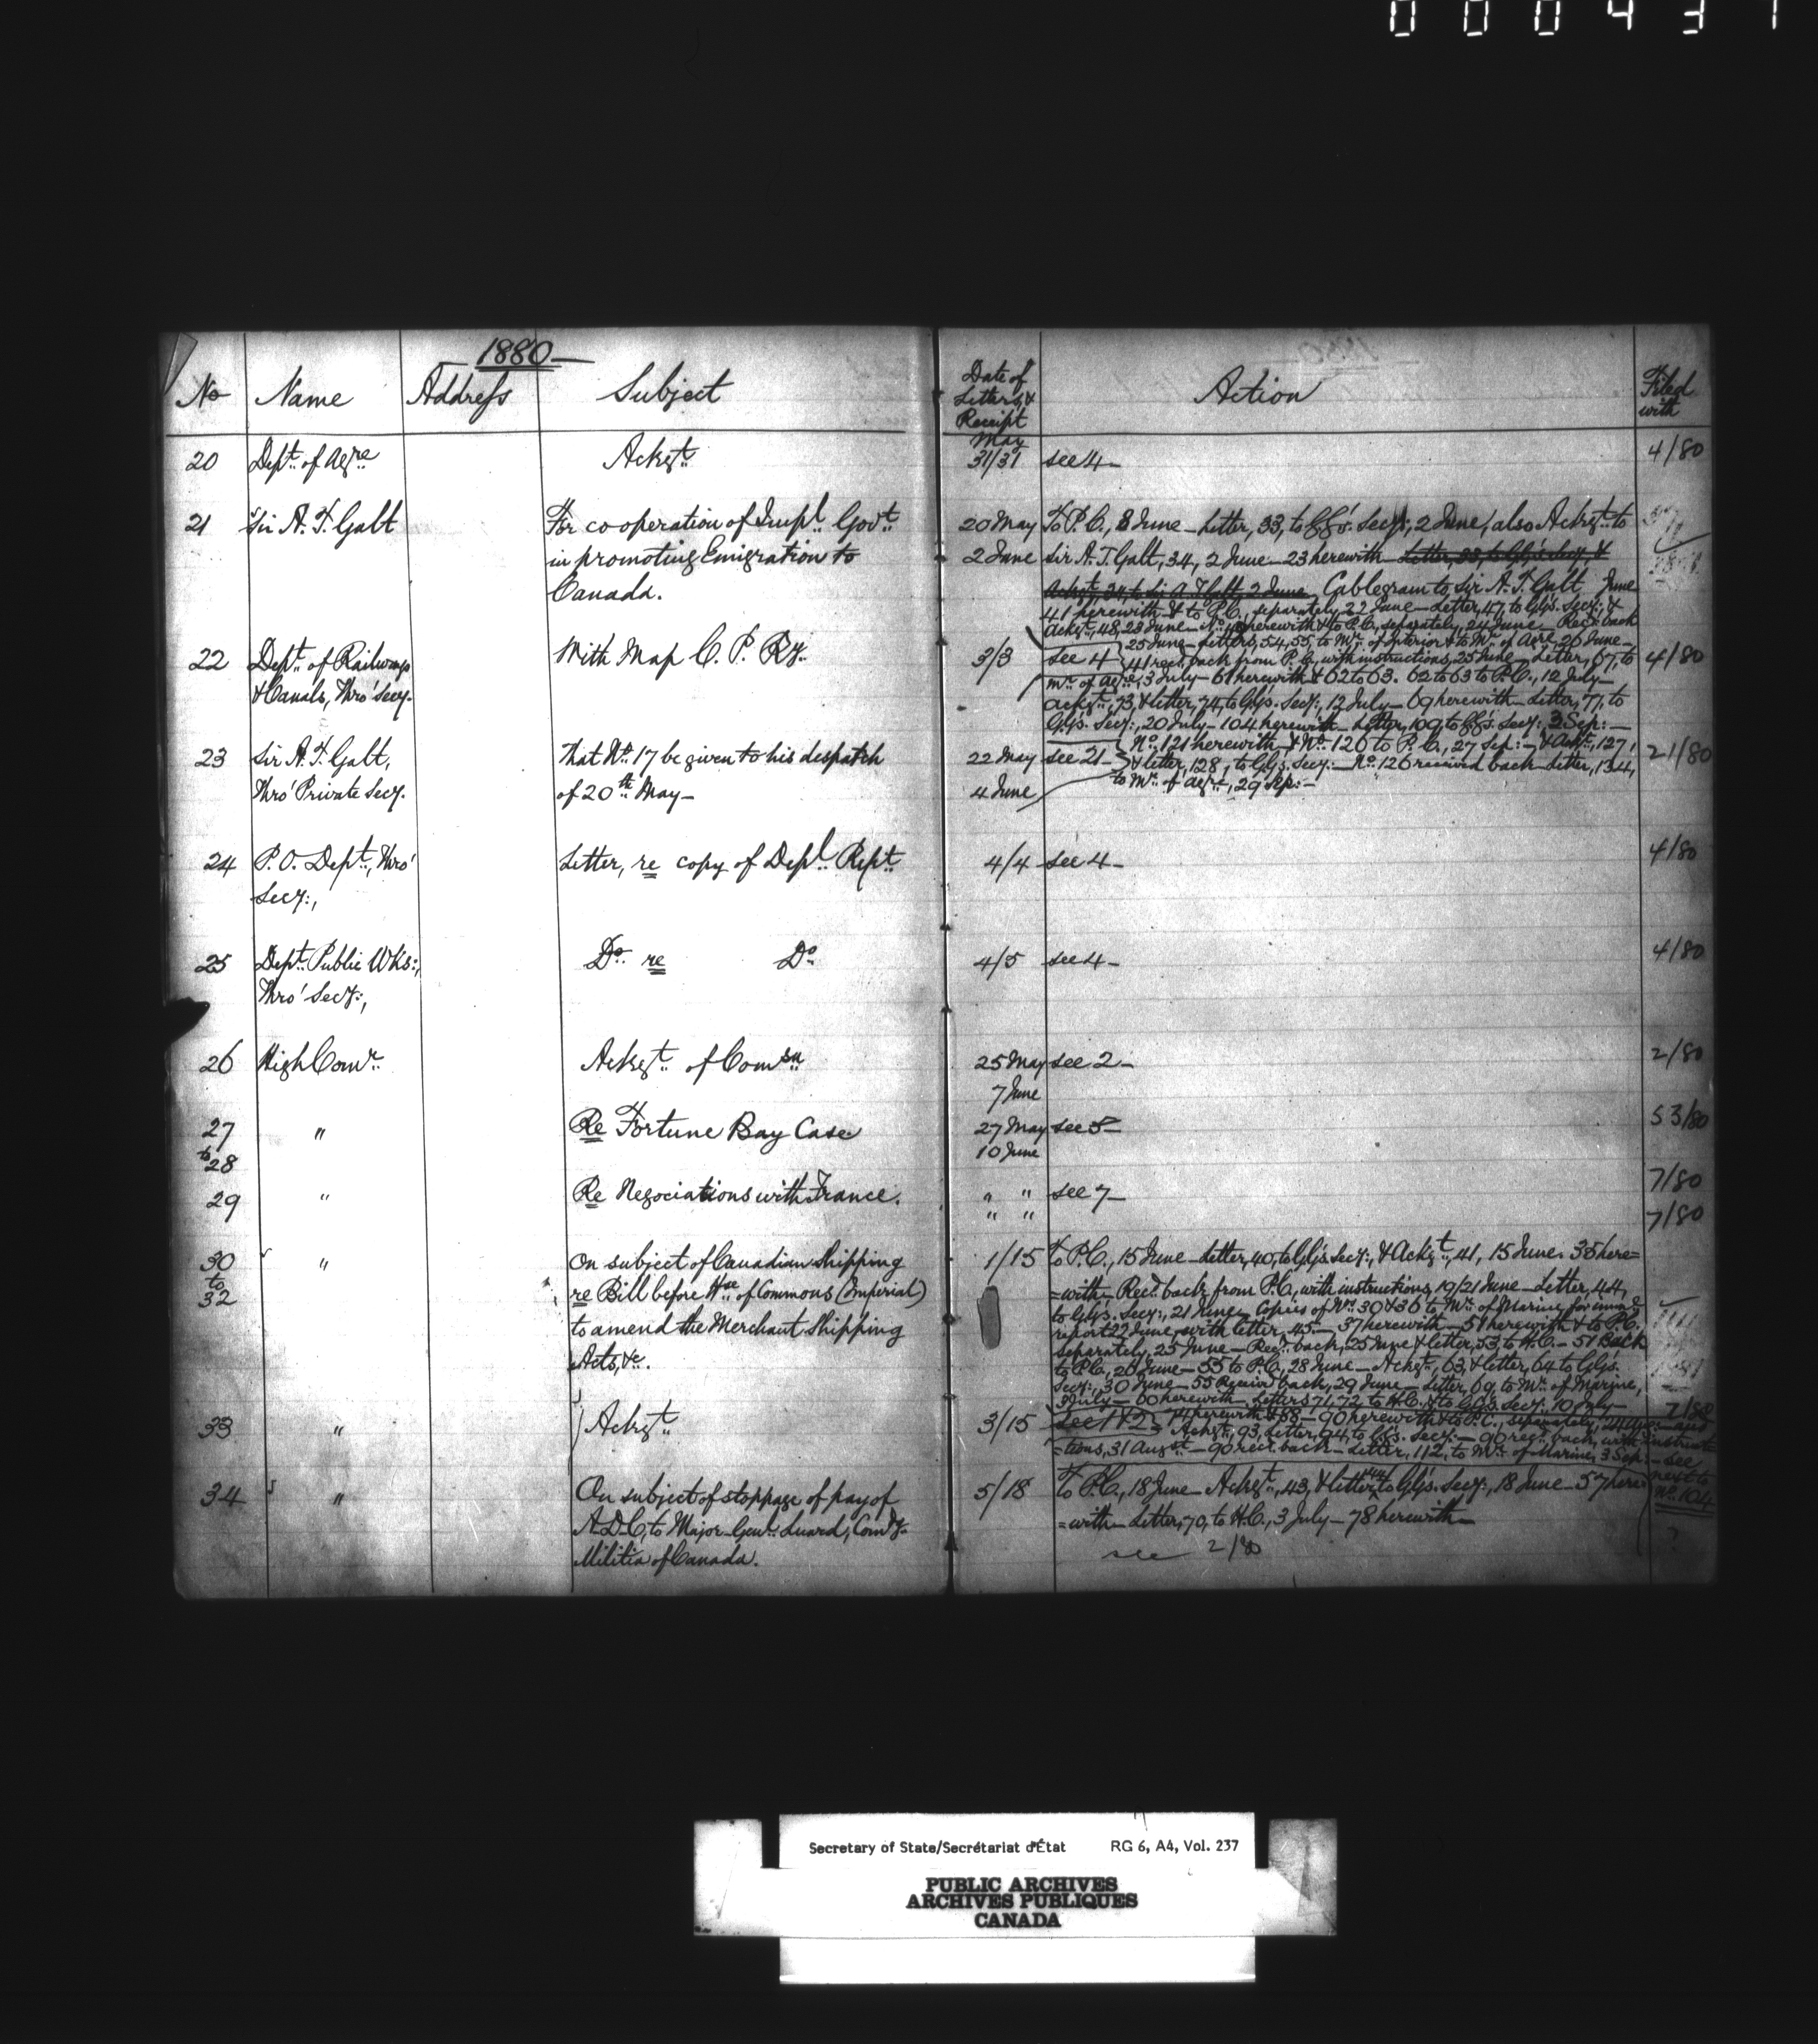 0 0 0 4 3 1
1880
No Name Address Subject
Date of
Letter, &
Receipt
Action
Filed
with
May
20 Dept. of Agre Ackgt. 31/31 see 4 4/80
21 Sir A. T. Galt For co-operation of Impl. Govt. 20 May To P.C., 8 June - Letter, 33, to GG's. Secy:, 2 June, also Ackgt. to
in promoting Emigration to 2 June Sir A. T. Galt, 34, 2 June - 23 herewith Letter, 33, to GG's Secy, &
Canada. Ackgt, 34, to Sir A T Galt, 2 June, Cablegram to Sir A. T. Galt June
41 herewith & to P.C., separately 22 June - Letter, 47, to GG's. Secy: &
Ackgt, 48, 23 June - No. herewith & to P.C. separately, 24 June - Recd. back
25 June - Letters, 54, 55, to Mr. of Interior & to Mr. of Agre, 26 June -
22 Dept. of Railways With Map C. P. Ry. 3/3 see 4 41 recd. back from P.C., with instructions, 25 June - Letter, 67, to 4/80
& Canals, Thro' Secy. Mr. of Agre, 3 July - 61 herewith & 62 to 63. 62 to 63 to P.C., 12 July -
Ackgt., 73, & letter, 74, to GG's. Secy:, 12 July - 69 herewith - Letter, 77, to
GG's. Secy:, 20 July - 104 herewith - Letter, 109 to GG's. Secy:, 3 Sep: -
23 Sir A. T. Galt, That No. 17 be given to his despatch 22 May see 21 - No. 121 herewith & No. 126 to P.C., 27 Sep: - & Ackt., 127, 21/80
Thro' Private Secy. of 20th. May - 4 June & letter, 128, to GG's. Secy: - No. 126 received back - Letter, 134,
to Mr. of Agre, 29 Sep: -
24 P. O. Dept., Thro' Letter, re copy of Depl. Rept. 4/4 see 4 - 4/80
Secy:,
25 Dept. Public Wks:, Do. re Do. 4/5 see 4 - 4/80
Thro' Secy:,
26 High Comr. Ackgt. of Comsn 25 May see 2 - 2/80
7 June
27 " Re Fortune Bay Case 27 May see 5 - 53/80
to 28 10 June
29 " Re Negociations with France. " " see 7 - 7/80
" " 7/80
30 " On subject of Canadian Shipping 1/15 To P.C., 15 June - Letter, 40, to GG's Secy:, & Ackgt., 41, 15 June. 35 here=
to
32 re Bill before Hse of Commons (Imperial) =with - Recd. back from P.C., with instructions, 19/21 June - Letter, 44,
to amend the Merchant Shipping to GG's. Secy:, 21 June, Copies of Nos. 30 & 36 to Mr. of Marine for immde
Acts, &c. report 22 June, with letter, 45 - 37 herewith - 51 herewith & to P.C.
separately, 25 June - Recd. back, 25 June & letter, 53 to H.C. - 51 Back
to P.C., 26 June - 55 to P.C., 28 June - Ackgt., 63, & letter, 64 to GG's.
Secy:, 30 June - 55 Received back, 29 June - Letter, 69, to Mr. of Marine,
3 July - 60 herewith - Letters 71, 72, to H.C. & to GG's. Secy: 10 July -
33 " Ackgt. 3/15 see 1 & 2 - 74 herewith & 88 - 90 herewith & to P.C., separately, 7/80
Ackgt., 93, Letter, 94, to GG's. Secy: - 90 recd. back, with instruc
=tions, 31 Augst. - 90 recd. back - Letter, 112, to Mr. of Marine, 3 Sep: - see
next to
No. 104
34 " On subject of stoppage of pay of 5/18 To P.C., 18 June - Ackgt., 43, & letter 44 to GG's. Secy:, 18 June - 57 here=
A.D.C. to Major Genl. Luard, Comdg. =with - Letter, 70, to H.C., 3 July - 78 herewith -
Militia of Canada. see 2/80 ?
Secretary of State/Secrétariat d'État RG 6, A4, Vol. 237
PUBLIC ARCHIVES
ARCHIVES PUBLIQUES
CANADA